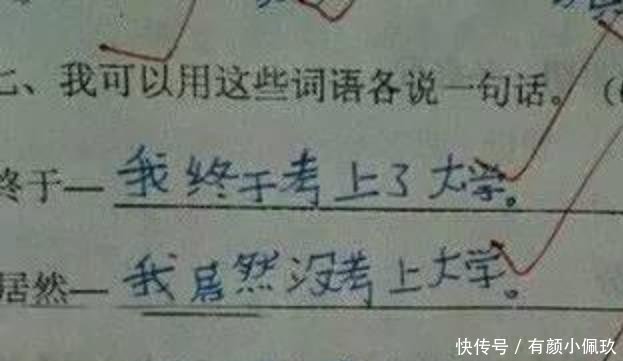 七、我可以用这些词语各说一句话。(
终于—我终于考上了大学。
居然—我居然没考上大学。
快传号/有颜小佩玖